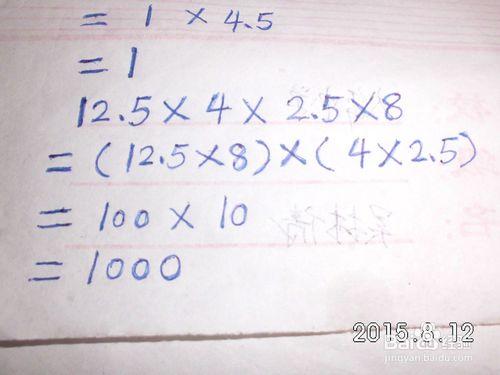 = 1 × 4.5
= 1
12.5 × 4 × 2.5 × 8
= (12.5 × 8) × (4 × 2.5)
= 100 × 10
= 1000
2015.8.12
Baidu 经验
jingyan.baidu.com